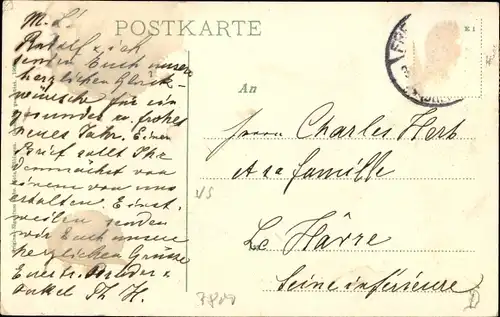 POSTKARTE
M. L.!
Rudolf u. ich
senden Euch unsere
herzlichen Glück-
wünsche für ein
gesundes u. frohes
neues Jahr. Einen
Brief sollt Ihr
demnächst von
einem von uns
erhalten. Einst-
weilen senden
wir Euch unsere
herzlichen Grüsse
Euer tr. Bruder u.
Onkel Th. H.
An
Herrn Charles Herb
et sa famille
Le Hâvre
Seine inférieure